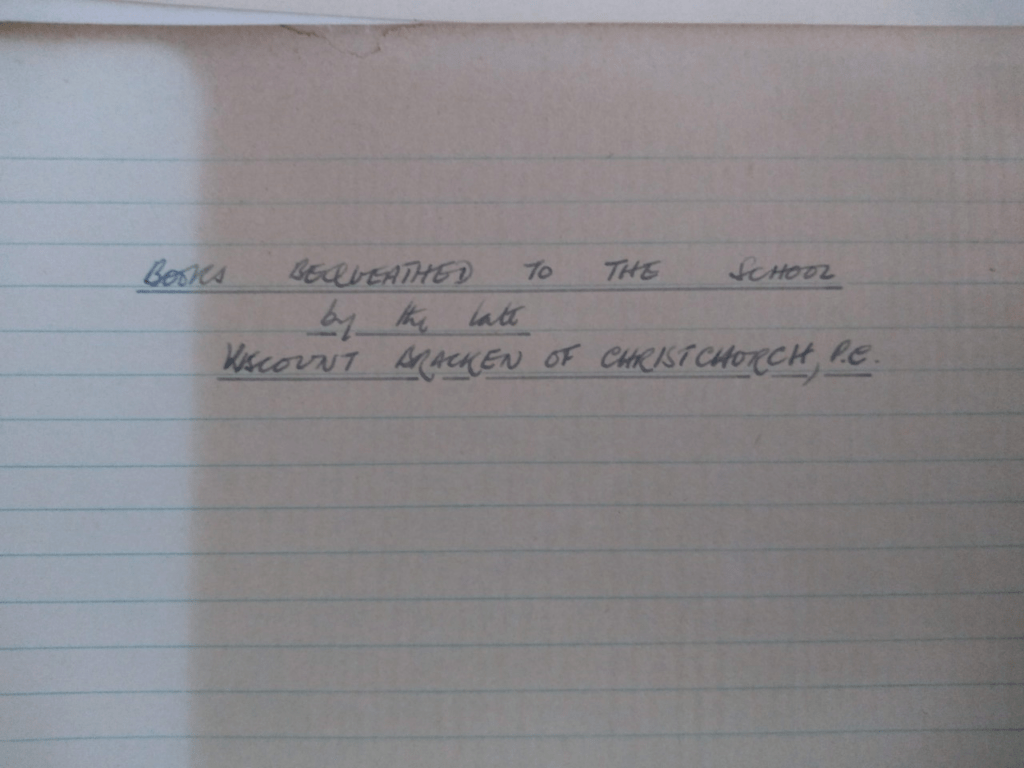 BOOKS BEQUEATHED TO THE SCHOOL
by the late
VISCOUNT BRACKEN OF CHRISTCHURCH, P.C.